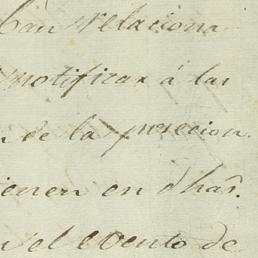 ban relaciona
notificar á las
n de la precision
ienen en dhas.
n el evento de